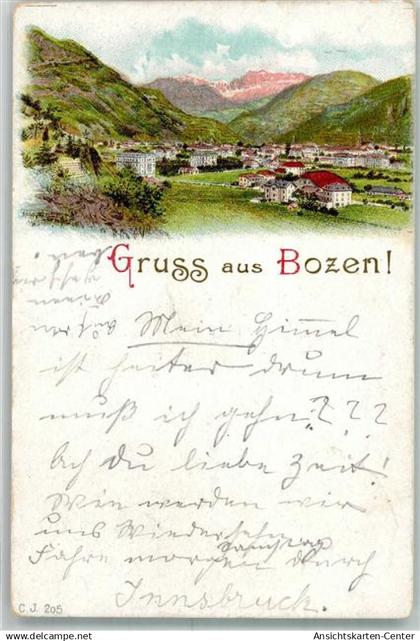 Gruss aus Bozen!
Mein Himmel
ist heiter drum
muß ich gehn???
Ach du liebe Zeit!
Wie werden wir
uns Wiedersehn
Samstag
Fahre morgen durch
Innsbruck.
C.J. 205
Ansichtskarten-Center